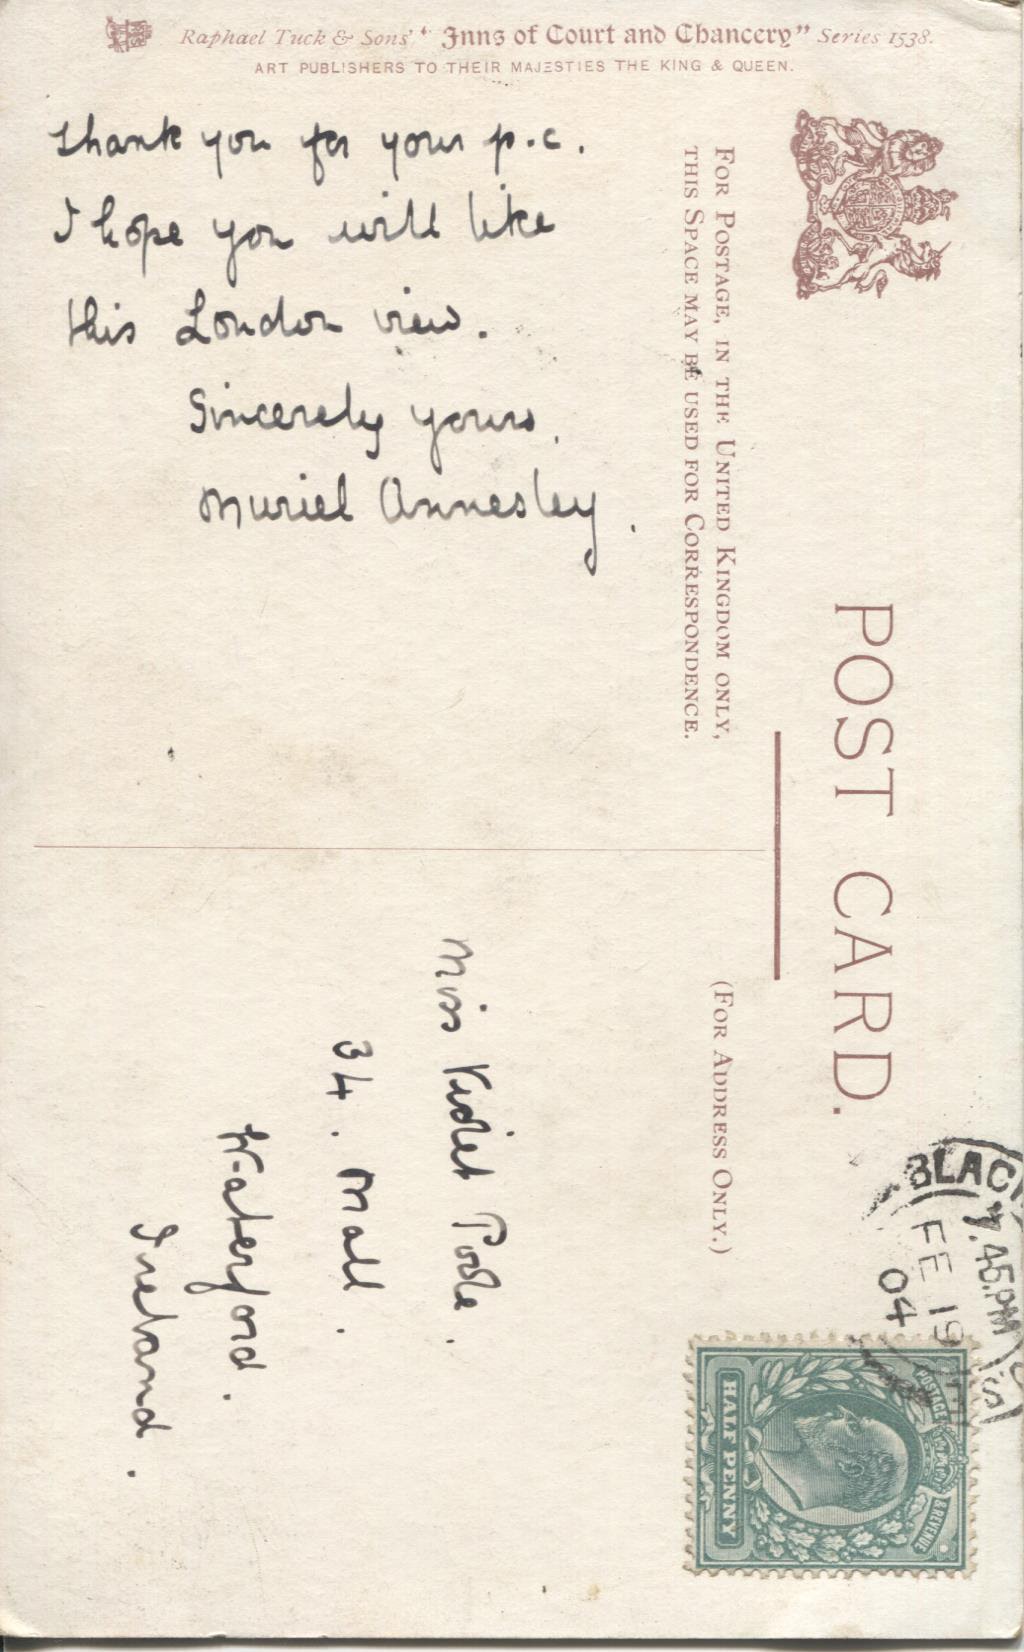 Raphael Tuck & Sons' "Inns of Court and Chancery" Series 1538.
ART PUBLISHERS TO THEIR MAJESTIES THE KING & QUEEN.
Thank you for your p.c.
I hope you will like
this London view.
Sincerely yours,
Muriel Annesley.
POST CARD.
FOR POSTAGE, IN THE UNITED KINGDOM ONLY,
THIS SPACE MAY BE USED FOR CORRESPONDENCE.
(FOR ADDRESS ONLY.)
Miss Violet Poole.
34. Mall.
Waterford.
Ireland.
7.45PM
FE 19
04
POSTAGE & REVENUE
HALF PENNY